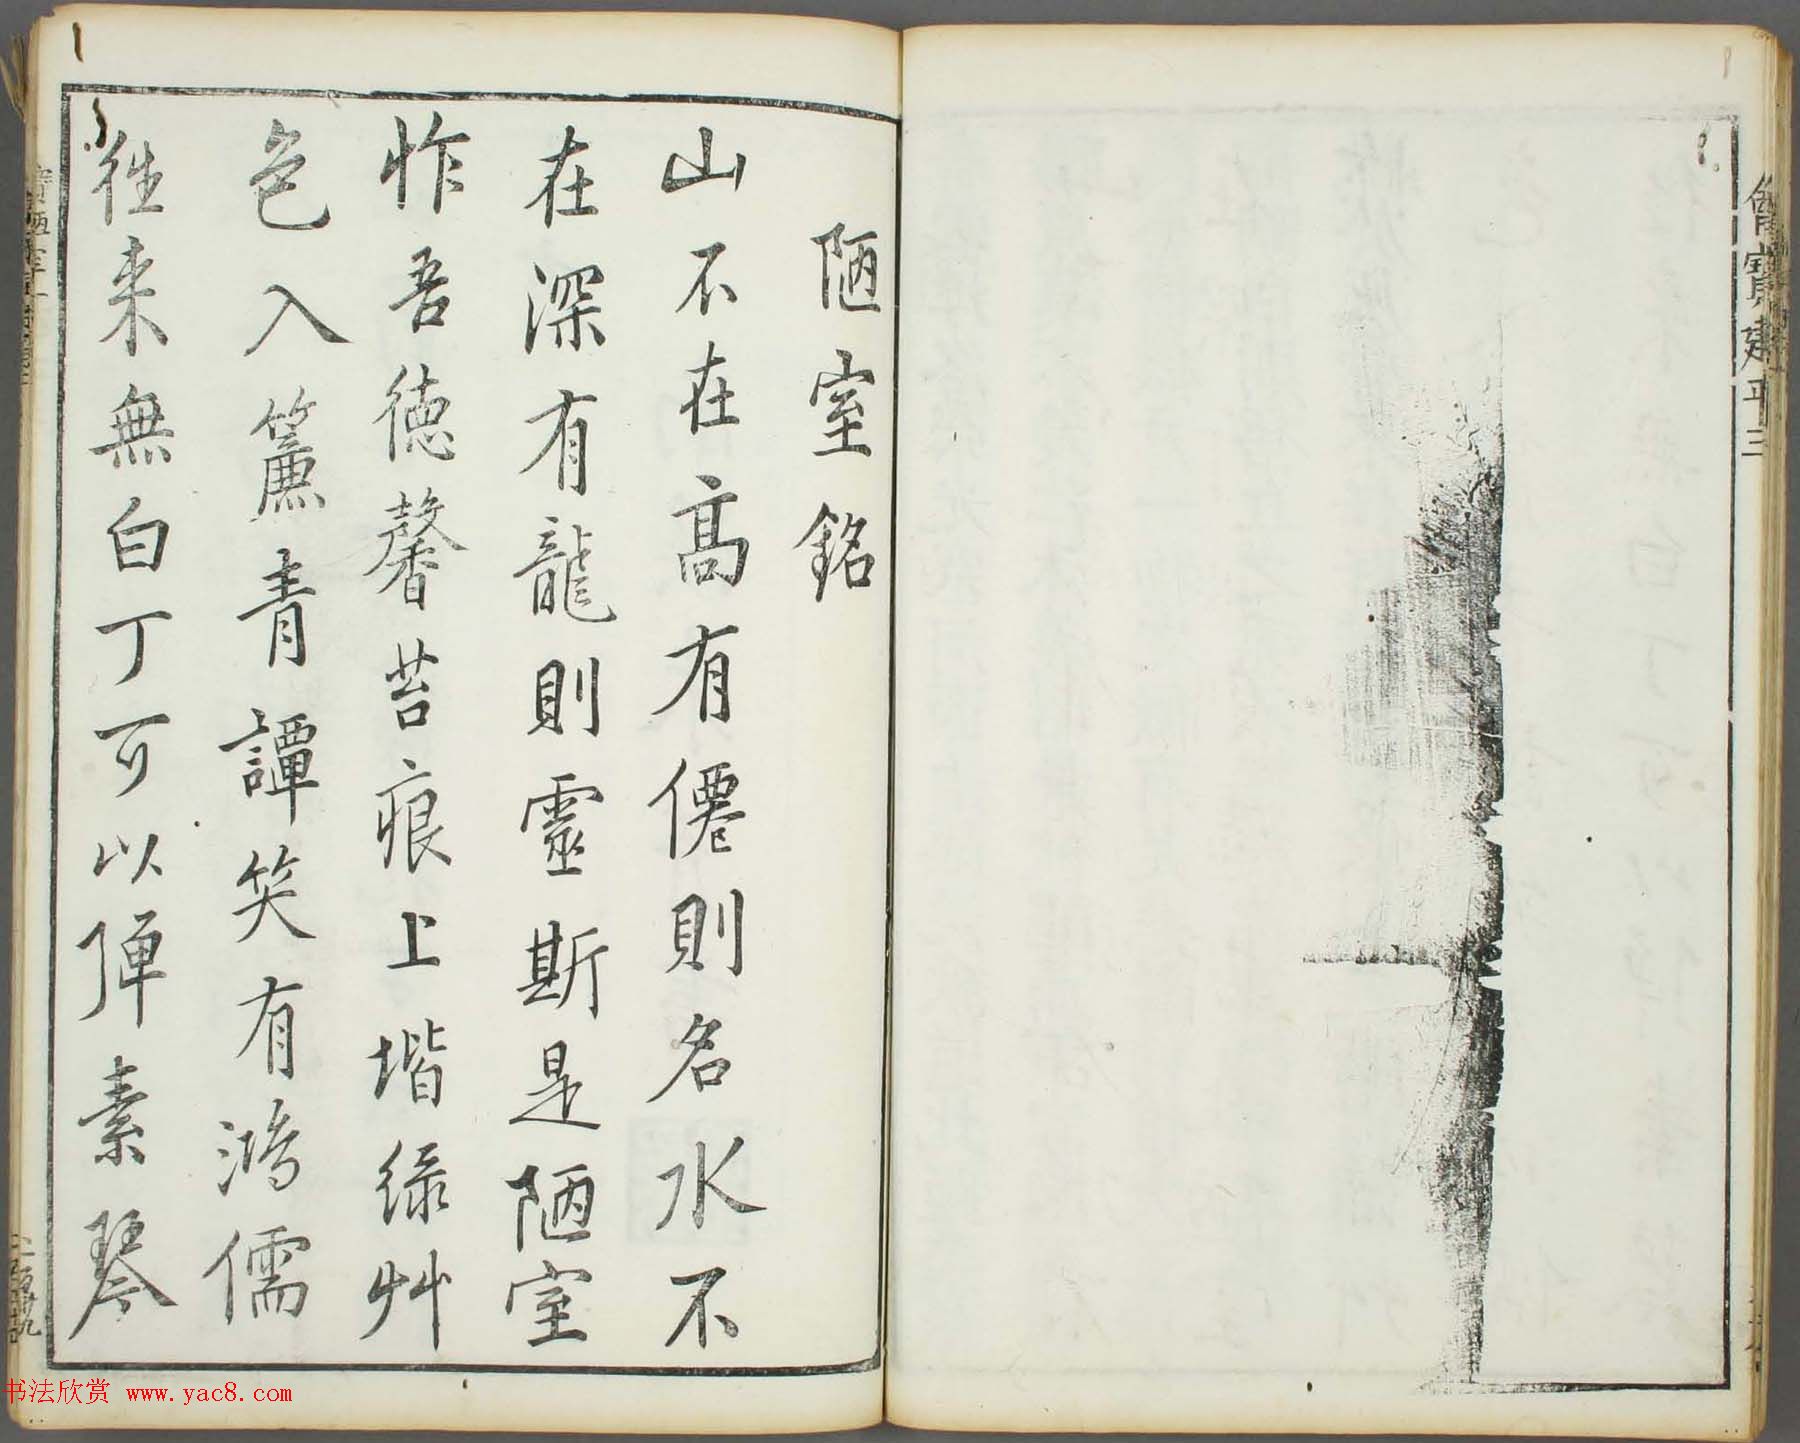 陋室銘
山不在高有僊則名水不
在深有龍則靈斯是陋室
怍吾徳馨苔痕上堦緑艸
色入簾青譚笑有鴻儒
往来無白丁可以弹素琴
书法欣赏 www.yac8.com